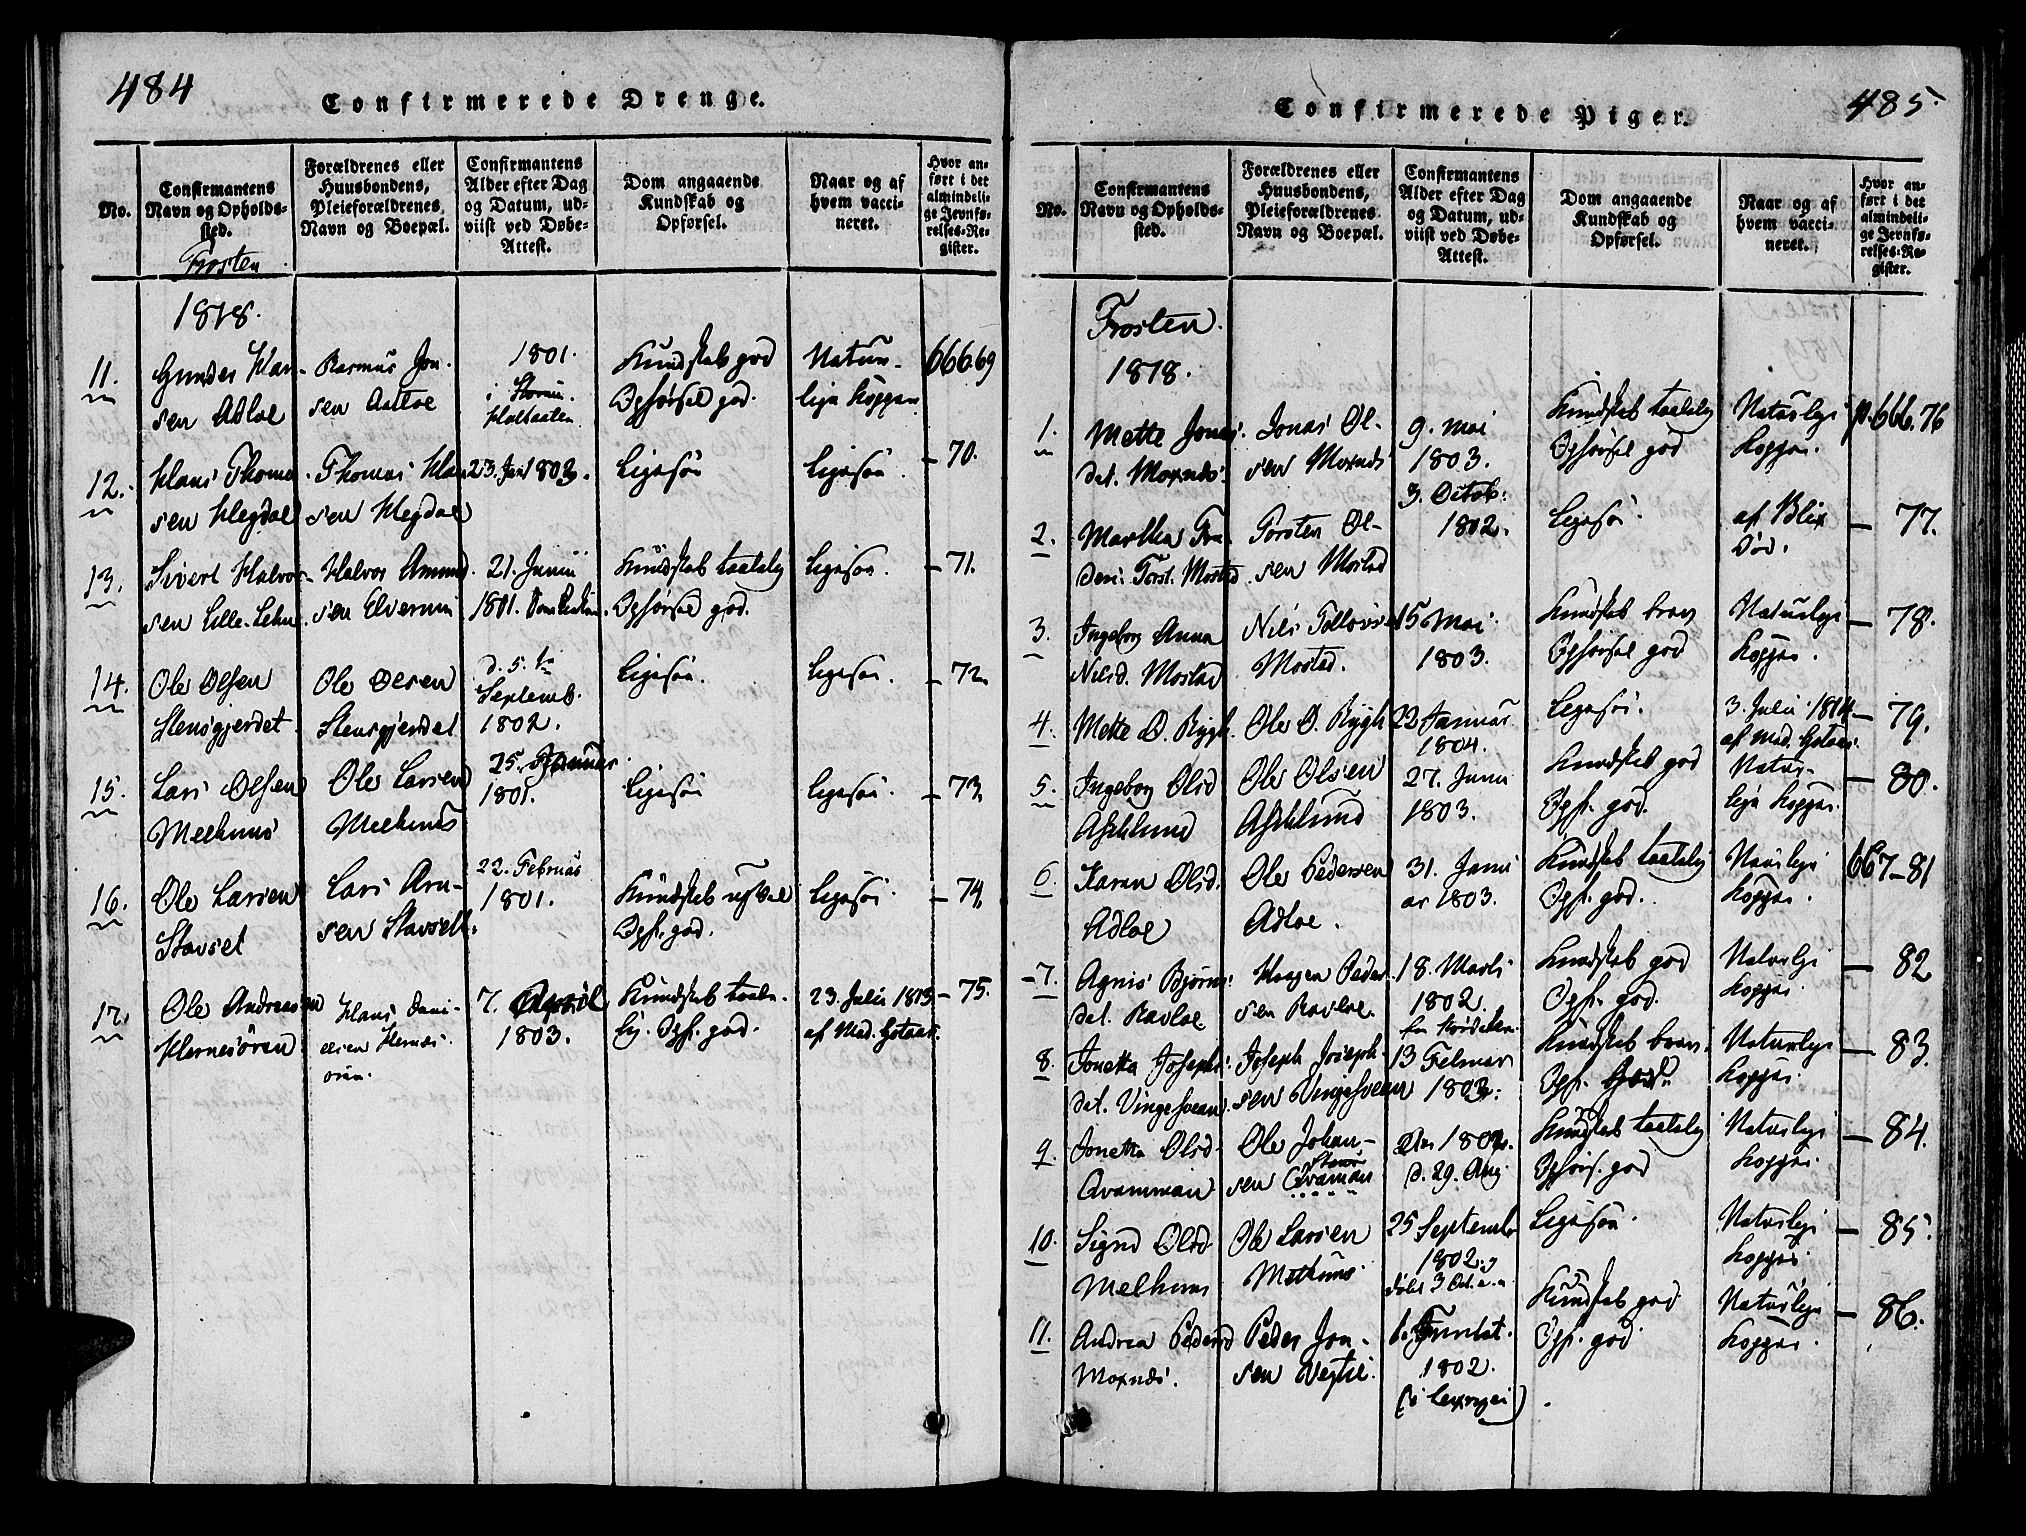 484
Confirmerede Drenge.
No.
Confirmantens
Navn og Opholds-
sted.
Forældrenes eller
Huusbondens,
Pleieforældrenes
Navn og Boepæl.
Confirmantens
Alder efter Dag
og Datum, ud-
viist ved Døbe-
Attest.
Dom angaaende
Kundskab og
Opførsel.
Naar og af
hvem vacci-
neret.
Hvor an-
ført i det
almindeli-
ge Jevnfø-
relses-Re-
gister.
Frosten
1818.
11.
sen Adloe
Rasmus Jon-
sen
1801.
i
Holtaalen
Kundskab god
Opførsel god.
Natur-
lige Kopper
666.69
12.
Hans Thoma
sen Hegdal
Thomas Han
sen Hegdal
23. Jan 1803.
Ligesaa
Ligesaa
- 70.
13.
Sivert Halvor-
sen Lille-
Halvor Amund
sen Elverum
21. Junii
1801.
Kundskab taalelig
Opførsel god.
Ligesaa.
- 71.
14.
Ole Olsen
Stensgjerdet
Ole Olsen
Stensgjerdet
d. 5. te
Septemb.
1802.
Ligesaa.
Ligesaa.
- 72.
15.
Lars Olsen
Melhuus
Ole Larsen
Melhuus
25. Januar
1801.
Ligesaa
Ligesaa.
- 73.
16.
Ole Larsen
Stavset
Lars Arn-
sen Stavset
22. Februar
1801.
Kundskab
Opf. god.
Ligesaa.
- 74.
17.
Ole Andreassen
Hernesøren
Hans Dani-
elsen Hernes-
øren.
7. April
1803.
Kundskab taale-
lig. Opf. god.
23. Julii 1813
af Mad. Gotaas.
- 75.
485.
Confirmerede Piger.
No.
Confirmantens
Navn og Opholds-
sted.
Forældrenes eller
Huusbondens,
Pleieforældrenes
Navn og Boepæl.
Confirmantens
Alder efter Dag
og Datum, ud-
viist ved Døbe-
Attest.
Dom angaaende
Kundskab og
Opførsel.
Naar og af
hvem vacci-
neret.
Hvor an-
ført i det
almindeli-
ge Jevnfø-
relses-Re-
gister.
Frosten.
1818.
1.
Mette Jonas
dat. Moxnes.
Jonas Ol-
sen Moxnes
9. Mai
1803.
Kundskab taalelig
Opførsel god
Naturlige
Kopper.
p. 666.76
2.
Martha
Torst. Mostad
Torsten Ol-
sen Mostad
3. Octob.
1802.
Ligesaa.
af Blix
- 77.
3.
Ingeborg Anna
Nilsd. Mostad
Nils
Mostad.
15 Mai
1803.
Kundskab brav
Opførsel god
Naturlige
Kopper.
- 78.
4.
Mette O. Rygh
Ole O. Rygh
22 Januar
1804.
Ligesaa.
3. Julii 1814
af Mad. Gotaas.
- 79.
5.
Ingeborg Olsd
Asklund
Ole Olsen
Asklund
27. Junii
1803.
Kundskab god
Opf. god.
Natur-
lige Kopper.
- 80.
6.
Karen Olsd.
Adloe
Ole Pedersen
Adloe.
31. Janu
ar 1803.
Kundskab taalelig
Opf. god.
Kopper.
667-81
7.
Agnes Bjørns
dat. Ravloe
Peder
sen Ravloe
18. Marts
1802.
Kundskab god
Opf. god.
Naturlige
Kopper.
- 82
8.
Jonetta Josephs
dat. Vingesveen
Joseph Joseph-
sen Vingesveen
13 Februar
1803.
Kundskab brav.
Opf. god.
Naturlige
Kopper.
- 83.
9.
Jonetta Olsd.
Qvamman
Ole Johan-
sen Qvaman
1802.
d. 29. Aug.
Kundskab taalelig
Opførs. god
Naturlige
Kopper.
- 84.
10.
Olsd.
Melhuus
Ole Larsen
Melhuus
25 Septemb
1802.
3 Oct.
Ligesaa.
Naturlige
Kopper.
- 85.
11.
Andrea Pedersd
Moxnes.
Peder Jon-
sen
1802.
Kundskab god
Opf. god.
Naturlige
Kopper.
- 86.